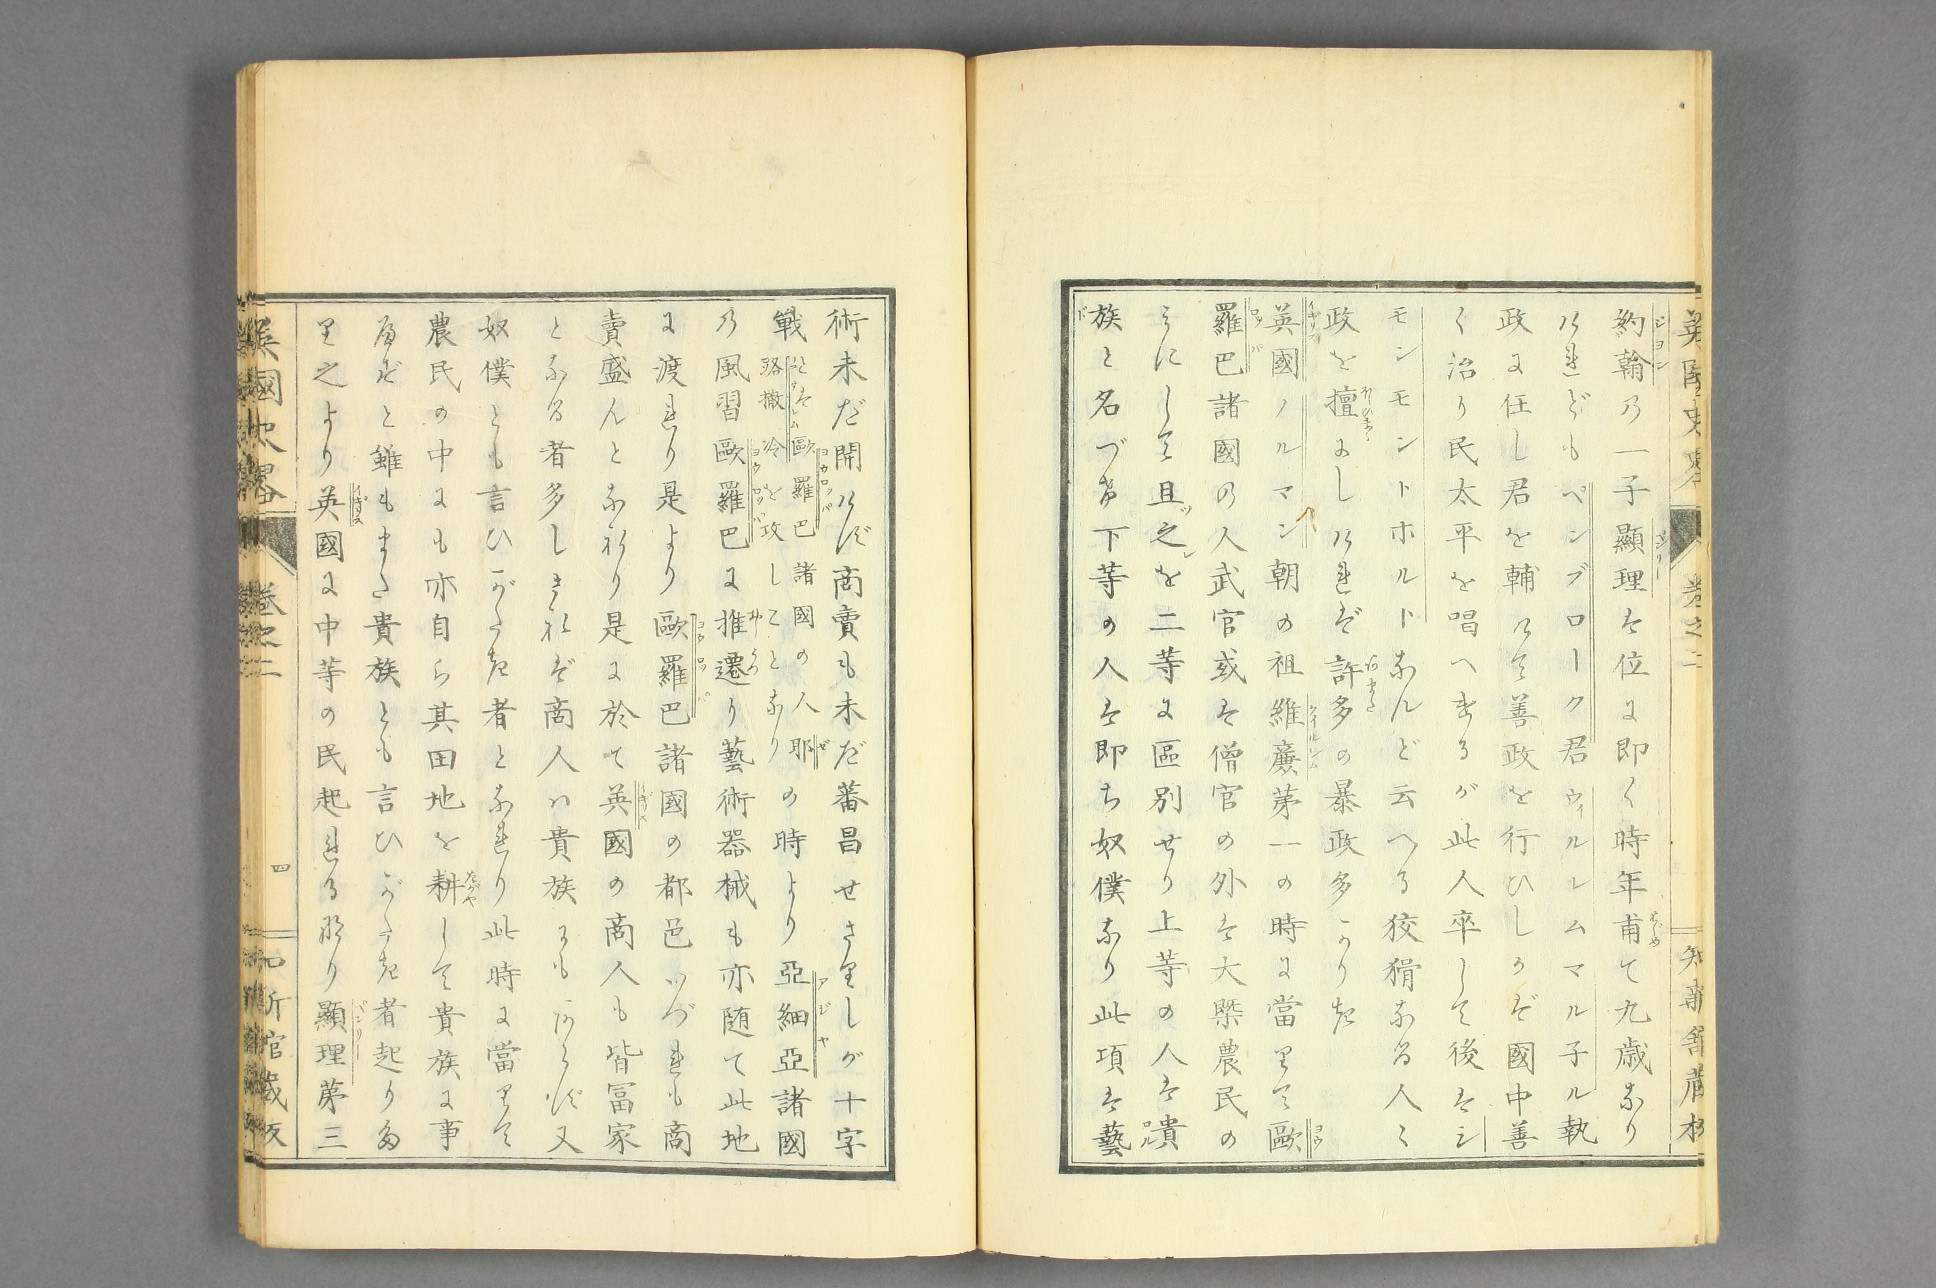 英國史畧
卷之二
知新館藏板
約翰の一子顯理は位に即く時年甫て九歳なり
けれどもペンブローク君ウィルレムマル子ル執
政に任し君を輔けて善政を行ひしかば國中善
く治り民太平を唱へけるが此人卒して後はシ
モンモントホルトなんど云へる狡猾なる人々
政を擅にしければ許多の暴政多かりき
英國ノルマン朝の祖維廉第一の時に當りて歐
羅巴諸國の人武官或は僧官の外は大槩農民の
みにして且之を二等に區別せり上等の人は貴
族と名づけ下等の人は即ち奴僕なり此項は藝
術未だ開けず商賣も未だ蕃昌せざりしが十字
戰歐羅巴諸國の人耶路撒冷を攻しことなりの時より亞細亞諸國
の風習歐羅巴に推遷り藝術器械も亦随て此地
に渡れり是より歐羅巴諸國の都邑いづれも商
賣盛んとなれり是に於て英國の商人も皆冨家
となる者多しされば商人は貴族にもあらず又
奴僕とも言ひがたき者となれり此時に當りて
農民の中にも亦自ら其田地を耕して貴族に事
へずと雖もまた貴族とも言ひがたき者起りた
り之より英國に中等の民起れるなり顯理第三
英國史畧
卷之二
四
知新館藏板